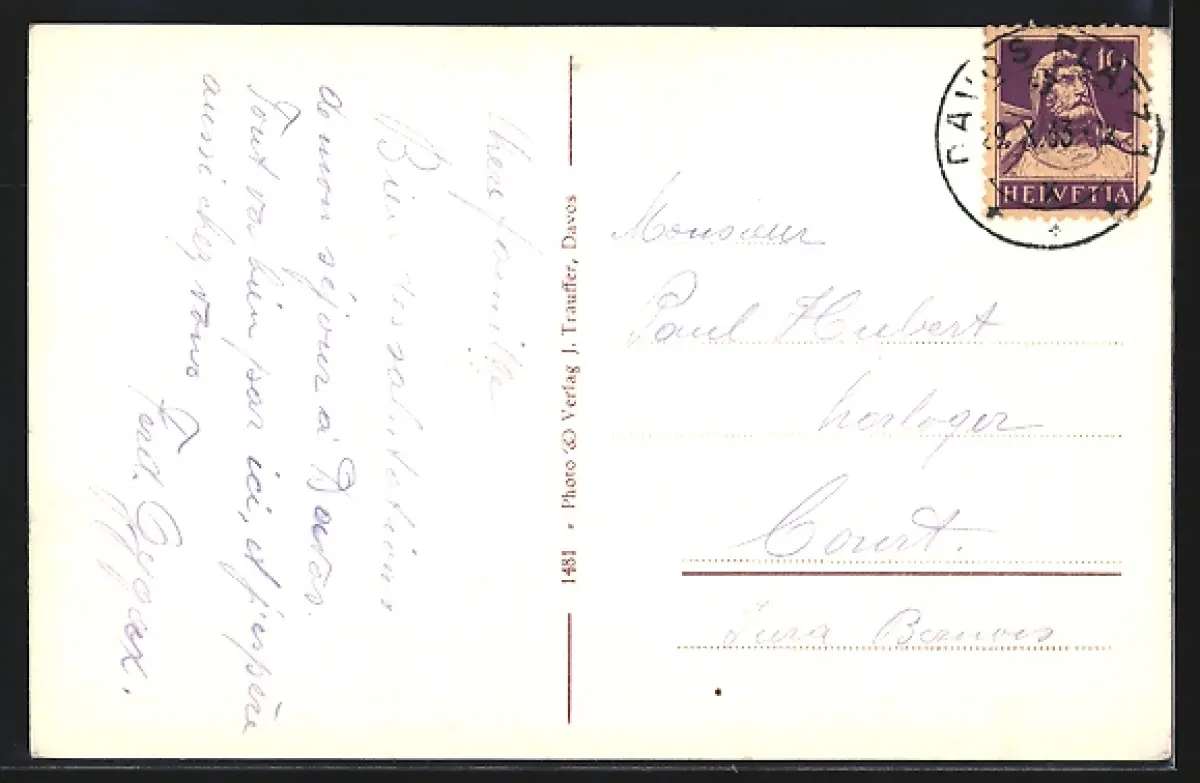 Chère famille
Bien salutations
de mon séjour à Davos.
Tout va bien par ici, et j'espère
aussi chez vous
Ferd. Gygax.
1481 • Photo Verlag J. Trauffer, Davos
DAVOS PLATZ 1
29.X.33
10
HELVETIA
Monsieur
Paul Hubert
horloger
Court.
Jura Bernois